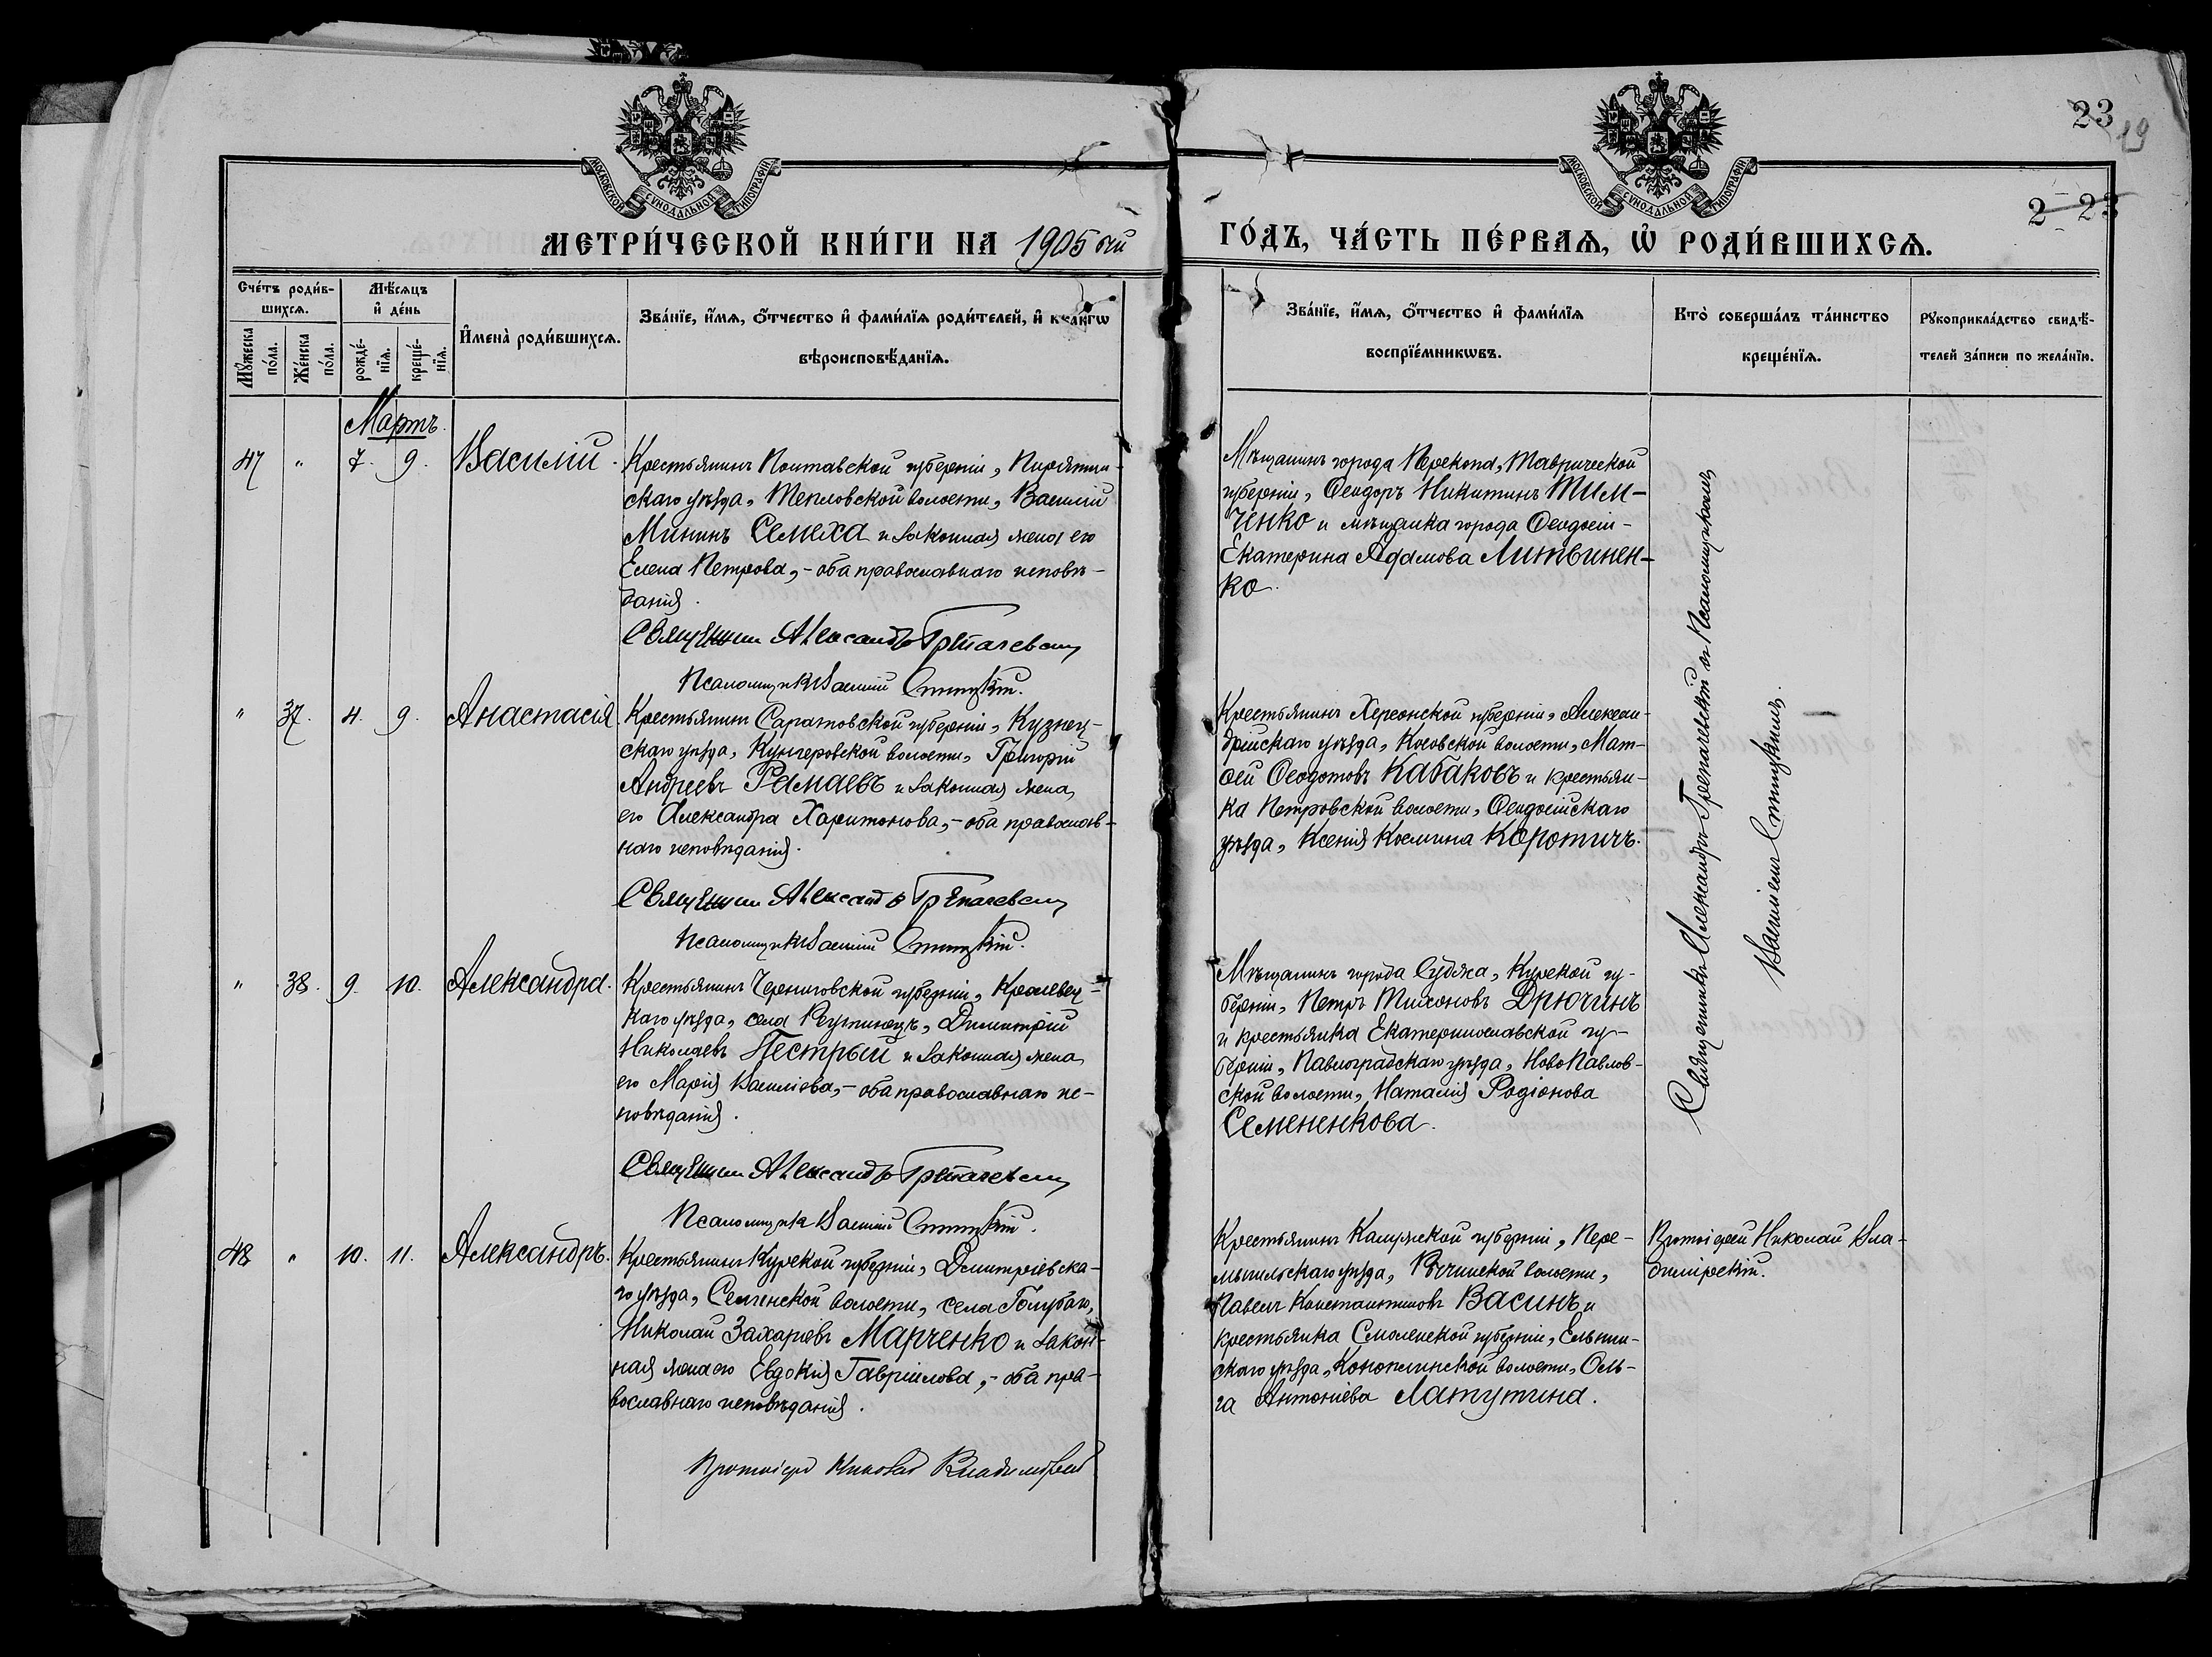 23
19
2 23
МОСКОВСКОЙ СѴНОДАЛЬНОЙ ТИПОГРАФІИ
МОСКОВСКОЙ СѴНОДАЛЬНОЙ ТИПОГРАФІИ
МЕТРИ́ЧЕСКОЙ КНИ́ГИ НА 1905 ый
ГО́ДЪ, ЧА́СТЬ ПЕ́РВАѦ, Ѡ҆ РОДИ́ВШИХСѦ.
Сче́тъ роди́в-
шихсѧ.
Мꙋ́жеска по́ла.
Же́нска по́ла.
Мѣ́сѧцъ
и҆ де́нь
рожде́-
нїѧ.
креще́-
нїѧ.
И҆мена̀ роди́вшихсѧ.
Зва́нїе, и҆́мѧ, ѻ҆́тчество и҆ фами́лїѧ роди́телей, и҆ како́гѡ
вѣроисповѣ́данїѧ.
Зва́нїе, и҆́мѧ, ѻ҆́тчество и҆ фами́лїѧ
воспрїе́мникѡвъ.
Кто̀ соверша́лъ та́инство
креще́нїѧ.
Рꙋкоприкла́дство свидѣ́-
телей за́писи по жела́нїю.
Мартъ.
47 " 7. 9. Василій.
Крестьянинъ Полтавской губерніи, Пирятин-
скаго уѣзда, Тепловской волости, Василій
Мининъ Семеха и законная жена его
Елена Петрова, - оба православнаго исповѣ-
данія.
Священникъ Александръ Трепачевскій
Псаломщикъ Василій
Мѣщанинъ города Перекопа, Таврической
губерніи, Ѳеодоръ Никитинъ Тим-
ченко и мѣщанка города Ѳеодосіи -
Екатерина Адамова Литвинен-
ко.
" 37. 4. 9. Анастасія.
Крестьянинъ Саратовской губерніи, Кузнец-
скаго уѣзда, Кунчеровской волости, Григорій
Андреевъ Рамаевъ и законная жена
его Александра Харитонова, - оба православ-
наго исповѣданія.
Священникъ Александръ Трепачевскій
Псаломщикъ Василій
Крестьянинъ Херсонской губерніи, Алексан-
дрійскаго уѣзда, Косовской волости, Мат-
ѳей Ѳеодотовъ Кабаковъ и крестьян-
ка Петровской волости, Ѳеодосійскаго
уѣзда, Ксенія Космина Коротичъ.
" 38. 9. 10. Александра.
Крестьянинъ Черниговской губерніи, Кролевец-
каго уѣзда, села Реутинецъ, Димитрій
Николаевъ Пестрый и законная жена
его Марія Василіева, - оба православнаго ис-
повѣданія.
Священникъ Александръ Трепачевскій
Псаломщикъ Василій
Мѣщанинъ города Суджа, Курской гу-
берніи, Петръ Тихоновъ Дрючинъ
и крестьянка Екатеринославской гу-
берніи, Павлоградскаго уѣзда, НовоПавлов-
ской волости, Наталія Родіонова
Семененкова.
Священникъ Александръ Трепачевскій съ Псаломщикомъ
Василіемъ
48 " 10. 11. Александръ.
Крестьянинъ Курской губерніи, Дмитріевска-
го уѣзда, волости, села Голубово,
Николай Захаріевъ Марченко и закон-
ная жена его Евдокія Гавріилова, - оба пра-
вославнаго исповѣданія.
Протоіерей Николай Владимірскій
Крестьянинъ Калужской губерніи, Пере-
мышльскаго уѣзда, волости,
Павелъ Константиновъ Васинъ и
крестьянка Смоленской губерніи, Ельнин-
скаго уѣзда, Коноплинской волости, Оль-
га Антоніева Латутина.
Протоіерей Николай Вла-
димірскій.